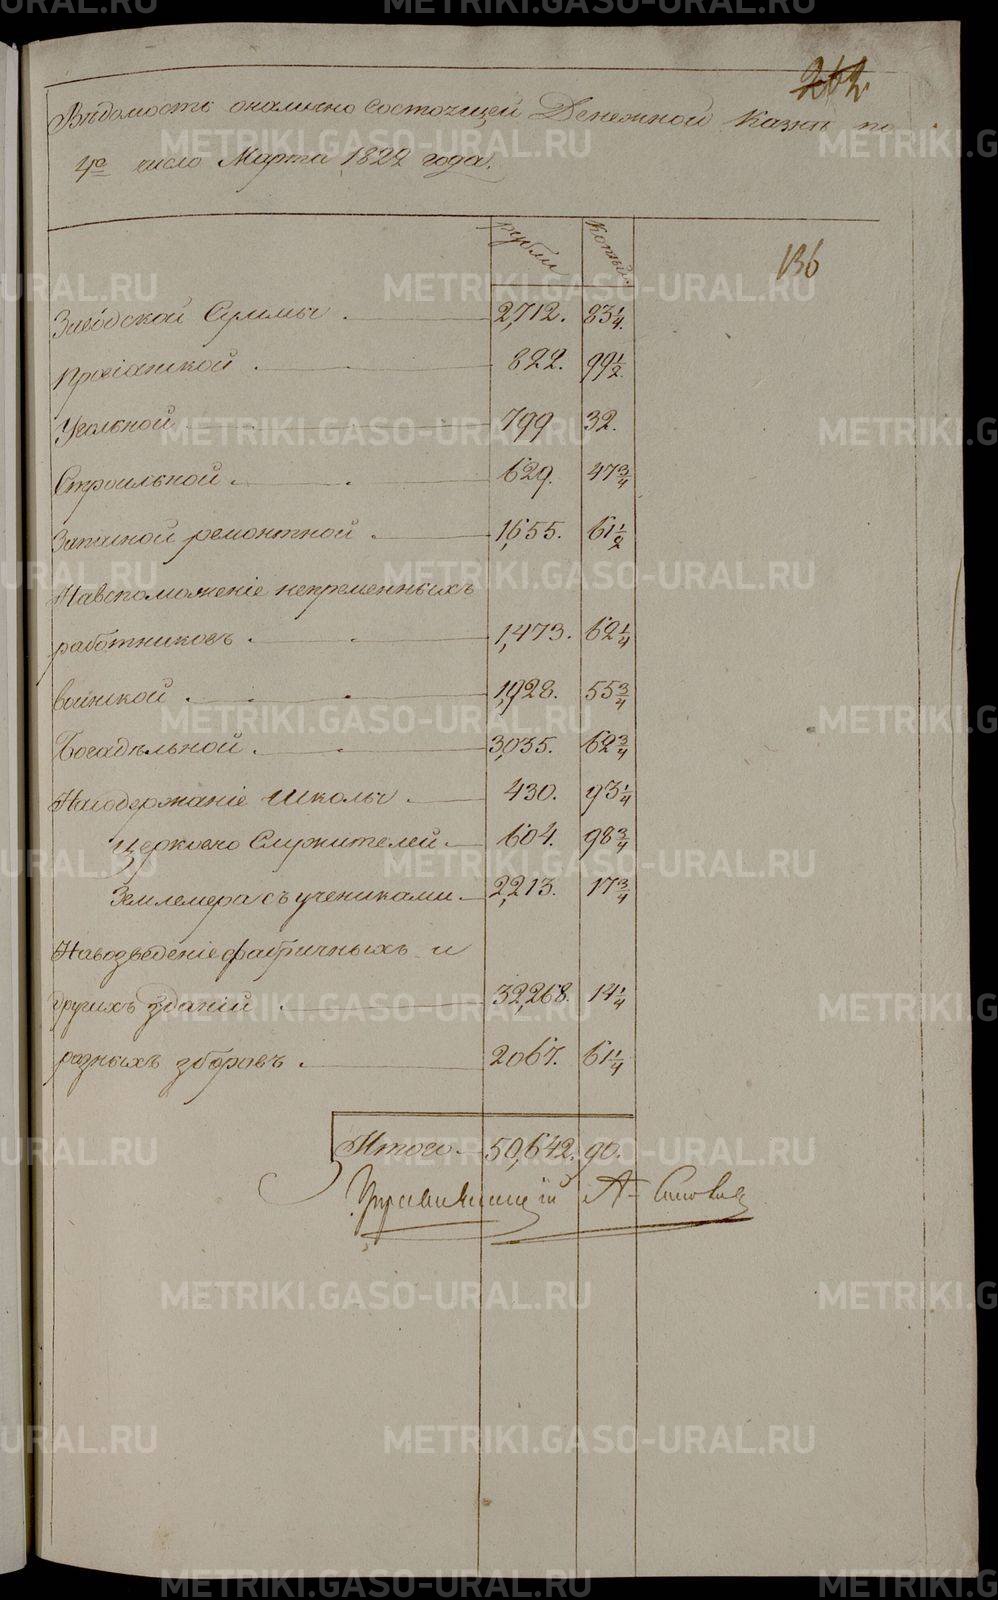 262
Вѣдомость оналично состоящей Денежной Казнѣ по
4е число Марта 1822 года.
рубли копѣйки
136
Заводской Суммы 2,712. 83 1/4
Провіантской 822. 99 1/2
Угольной 799 32.
Строильной 629. 47 3/4
Запасной ремонтной 1,655. 61 1/2
Навспоможеніе непременныхъ
работниковъ 1,473. 62 1/4
воинской 1,928. 55 3/4
Богадѣльной 3,035. 62 3/4
Насодержаніе Школы 430. 93 1/4
Церковно Служителей 604. 98 3/4
Землемера съ учениками 2,213. 17 3/4
Навозведеніе фабричныхъ и
другихъ зданій 32,268. 14 1/4
разныхъ зборовъ 2067. 61 1/4
Итого 50,642. 90.
Управляющій А.
METRIKI.GASO-URAL.RU